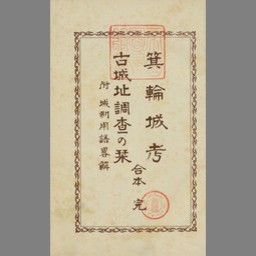 箕輪城考
古城址調査の栞
合本 完
附 城制用語畧解